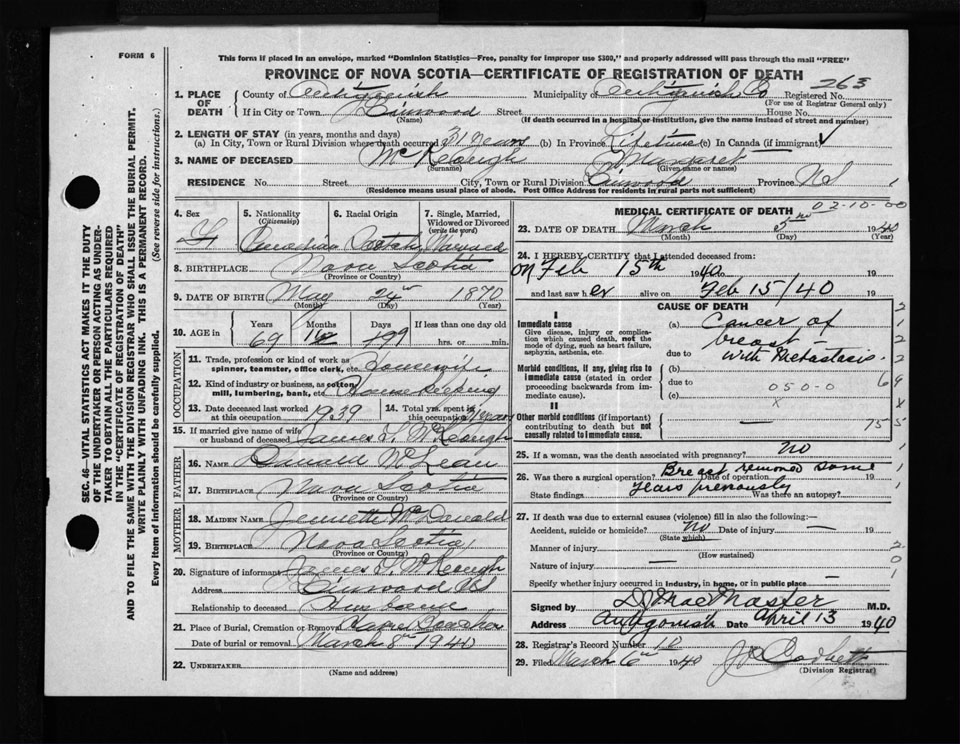 FORM 6
This form if placed in an envelope, marked "Dominion Statistics—Free, penalty for improper use $300," and properly addressed will pass through the mail "FREE"
PROVINCE OF NOVA SCOTIA—CERTIFICATE OF REGISTRATION OF DEATH
263
1. PLACE OF DEATH County of Antigonish Municipality of Antigonish Co Registered No.
(For use of Registrar General only)
If in City or Town Street House No.
(Name) (If death occurred in a hospital or institution, give the name instead of street and number)
2. LENGTH OF STAY (in years, months and days)
(a) In City, Town or Rural Division where death occurred 31 years (b) In Province Lifetime (c) In Canada (if immigrant)
3. NAME OF DECEASED McKeough Margaret
(Surname) (Given name or names)
RESIDENCE No. Street City, Town or Rural Division Province NS 1
(Residence means usual place of abode. Post Office Address for residents in rural parts not sufficient)
SEC. 46—VITAL STATISTICS ACT MAKES IT THE DUTY
OF THE UNDERTAKER OR PERSON ACTING AS UNDER-
TAKER TO OBTAIN ALL THE PARTICULARS REQUIRED
IN THE "CERTIFICATE OF REGISTRATION OF DEATH"
AND TO FILE THE SAME WITH THE DIVISION REGISTRAR WHO SHALL ISSUE THE BURIAL PERMIT.
WRITE PLAINLY WITH UNFADING INK. THIS IS A PERMANENT RECORD.
Every item of information should be carefully supplied. (See reverse side for instructions.)
4. Sex 5. Nationality 6. Racial Origin 7. Single, Married,
(Citizenship) Widowed or Divorced
(write the word)
F Canadian Scotch Married
8. BIRTHPLACE Nova Scotia
(Province or Country)
9. DATE OF BIRTH May 24 1870
(Month) (Day) (Year)
10. AGE in Years Months Days If less than one day old
69 hrs. or min.
OCCUPATION
11. Trade, profession or kind of work as Housewife
spinner, teamster, office clerk, etc.
12. Kind of industry or business, as cotton Home Keeping
mill, lumbering, bank, etc.
13. Date deceased last worked 1939 14. Total yrs. spent in years
at this occupation this occupation
15. If married give name of wife
or husband of deceased James L McKeough
FATHER
16. NAME Donald McLean
17. BIRTHPLACE Nova Scotia
(Province or Country)
MOTHER
18. MAIDEN NAME Jennette McDonald
19. BIRTHPLACE Nova Scotia
(Province or Country)
20. Signature of informant James L McKeough
Address NS
Relationship to deceased Husband
21. Place of Burial, Cremation or Removal
Date of burial or removal March 8th 1940
22. UNDERTAKER
(Name and address)
MEDICAL CERTIFICATE OF DEATH 02-10-00
23. DATE OF DEATH March 1940
(Month) (Day) (Year)
24. I HEREBY CERTIFY that I attended deceased from:
on Feb 15th 1940 to 19
and last saw her alive on Feb 15/40 19
CAUSE OF DEATH
I
Immediate cause (a) Cancer of
Give disease, injury or complica-
tion which caused death, not the breast –
mode of dying, such as heart failure,
asphyxia, asthenia, etc. due to with metastasis.
Morbid conditions, if any, giving rise to (b)
immediate cause (stated in order due to
proceeding backwards from im- 050-0
mediate cause). (c) x
II
Other morbid conditions (if important)
contributing to death but not
causally related to immediate cause.
25. If a woman, was the death associated with pregnancy? no
26. Was there a surgical operation? Breast removed some Date of operation 19
State findings years previously Was there an autopsy?
27. If death was due to external causes (violence) fill in also the following:—
Accident, suicide or homicide? No Date of injury — 19
(State which)
Manner of injury
(How sustained)
Nature of injury —
Specify whether injury occurred in industry, in home, or in public place —
Signed by D J MacMaster M.D.
Address Antigonish Date April 13 1940
28. Registrar's Record Number
29. Filed March 6th 1940 Corbett
(Division Registrar)